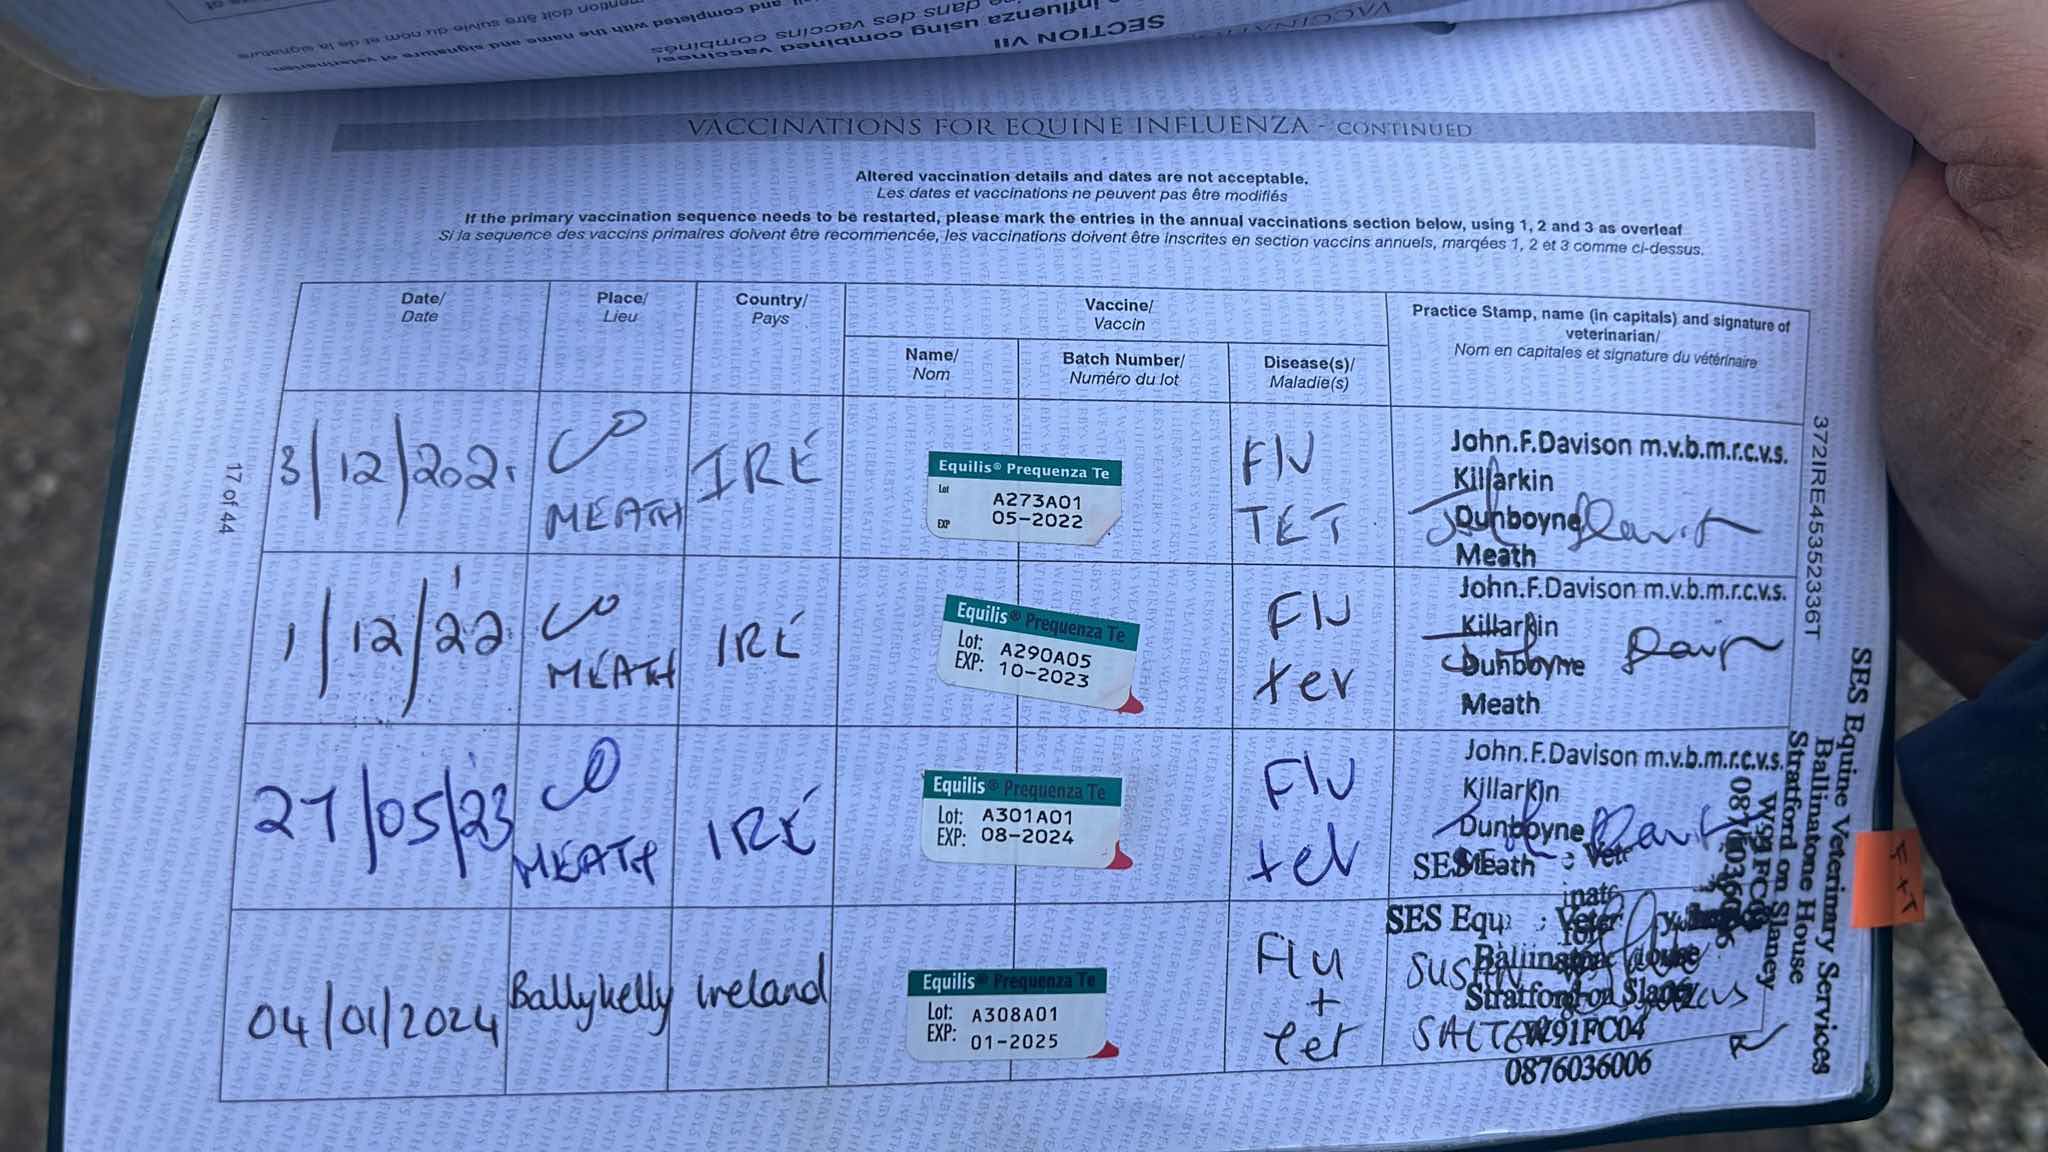 SECTION VII
VACCINATIONS FOR EQUINE INFLUENZA - CONTINUED
Altered vaccination details and dates are not acceptable.
Les dates et vaccinations ne peuvent pas être modifiés
If the primary vaccination sequence needs to be restarted, please mark the entries in the annual vaccinations section below, using 1, 2 and 3 as overleaf
Si la sequence des vaccins primaires doivent être recommencée, les vaccinations doivent être inscrites en section vaccins annuels, marqées 1, 2 et 3 comme ci-dessus.
Date/
Date
Place/
Lieu
Country/
Pays
Vaccine/
Vaccin
Name/
Nom
Batch Number/
Numéro du lot
Disease(s)/
Maladie(s)
Practice Stamp, name (in capitals) and signature of
veterinarian/
Nom en capitales et signature du vétérinaire
3/12/2021
CO
MEATH
IRE
Equilis® Prequenza Te
Lot
A273A01
EXP
05-2022
Flu
TET
John.F.Davison m.v.b.m.r.c.v.s.
Killarkin
Dunboyne
Meath
1/12/22
CO
MEATH
IRE
Equilis® Prequenza Te
Lot: A290A05
EXP: 10-2023
Flu
tet
John.F.Davison m.v.b.m.r.c.v.s.
Killarkin
Dunboyne
Meath
27/05/23
CO
MEATH
IRE
Equilis® Prequenza Te
Lot: A301A01
EXP: 08-2024
Flu
tet
John.F.Davison m.v.b.m.r.c.v.s.
Killarkin
Dunboyne
Meath
04/01/2024
Ballykelly
Ireland
Equilis® Prequenza Te
Lot: A308A01
EXP: 01-2025
Flu
+
tet
SUSAN
SALTER
Stratford on Slaney
W91FC04
0876036006
SES Equine Veterinary Services
Ballinatone House
Stratford on Slaney
W91FC04
0876036006
372IRE45352336T
17 of 44
F+T